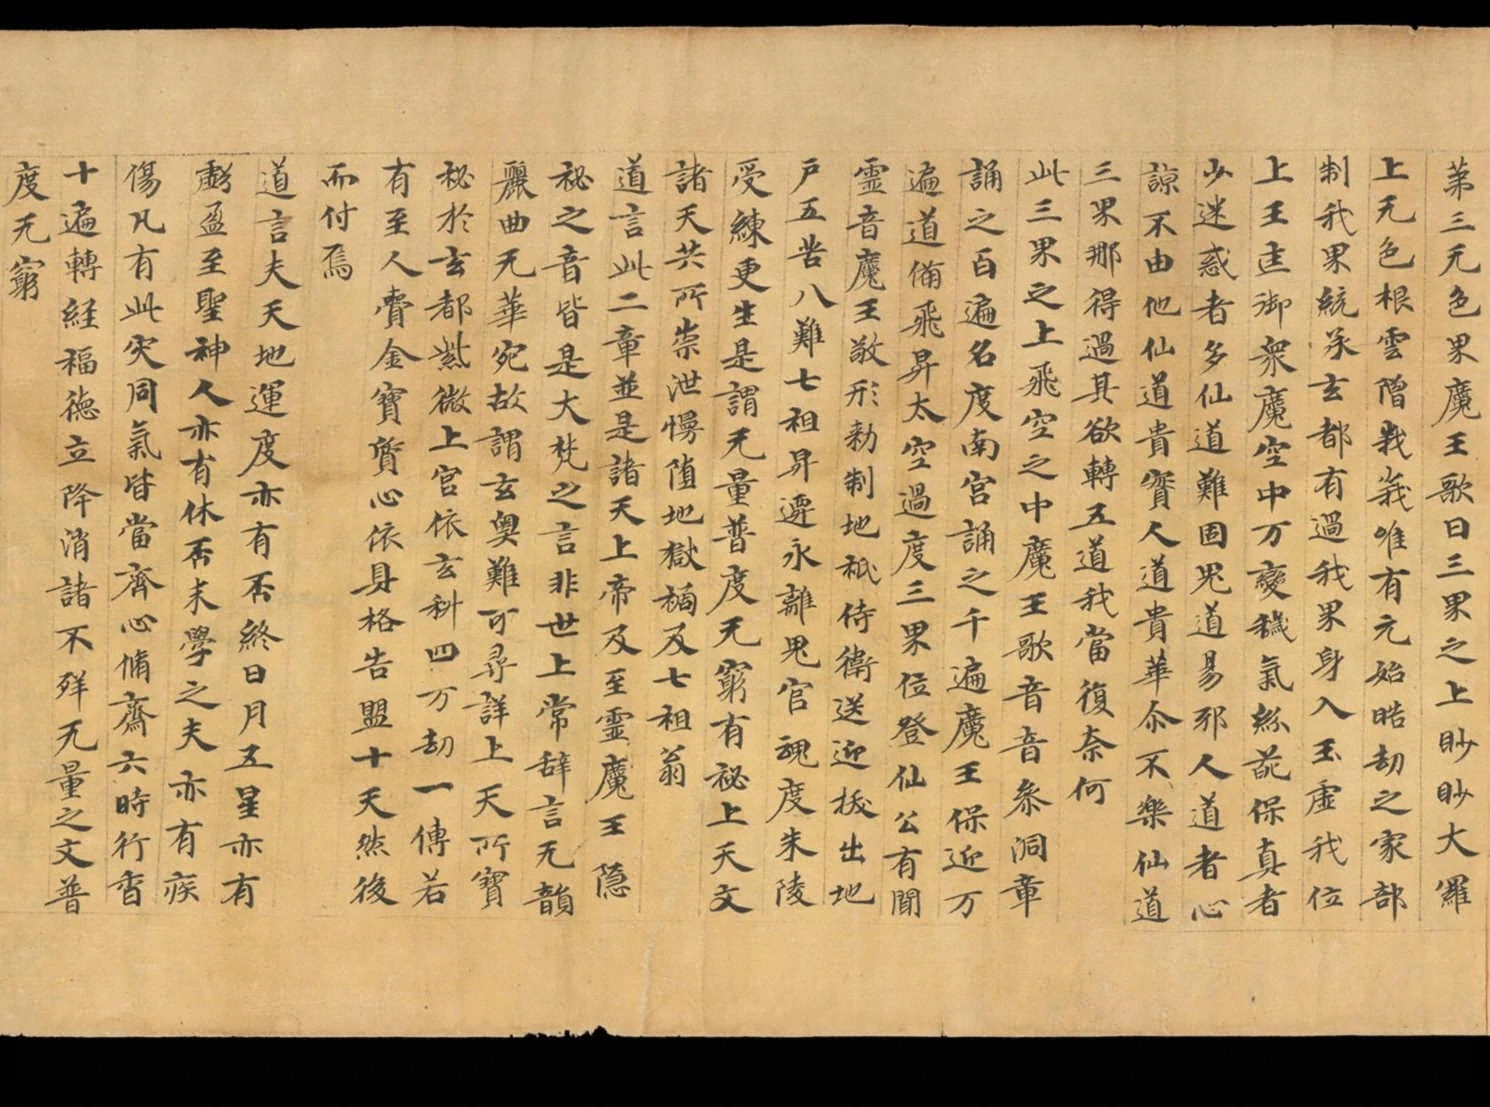 第三无色界魔王歌曰三界之上眇眇大羅
上无色根雲層峩峩唯有元始晧劫之家部
制我界統承玄都有過我界身入玉虛我位
上王匡御衆魔空中万變穢氣紛葩保真者
少迷惑者多仙道難固鬼道易邪人道者心
諒不由他仙道貴實人道貴華尒不樂仙道
三界那得過其欲轉五道我當復奈何
此三界之上飛空之中魔王歌音音叅洞章
誦之百遍名度南宮誦之千遍魔王保迎万
遍道俻飛昇太空過度三界位登仙公有聞
靈音魔王敬形勑制地祇侍衛送迎拔出地
戶五苦八難七祖昇遷永離鬼官魂度朱陵
受練更生是謂无量普度无窮有秘上天文
諸天共所崇泄慢墮地獄禍及七祖翁
道言此二章並是諸天上帝及至靈魔王隱
秘之音皆是大梵之言非世上常辞言无韻
麗曲无華宛故謂玄奧難可尋詳上天所寶
秘於玄都紫微上宮依玄科四万劫一傳若
有至人賷金寶質心依具格告盟十天然後
而付焉
道言夫天地運度亦有否終日月五星亦有
虧盈至聖神人亦有休否末學之夫亦有疾
傷凡有此灾同氣皆當齊心脩齋六時行香
十遍轉経福德立降消諸不祥无量之文普
度无窮